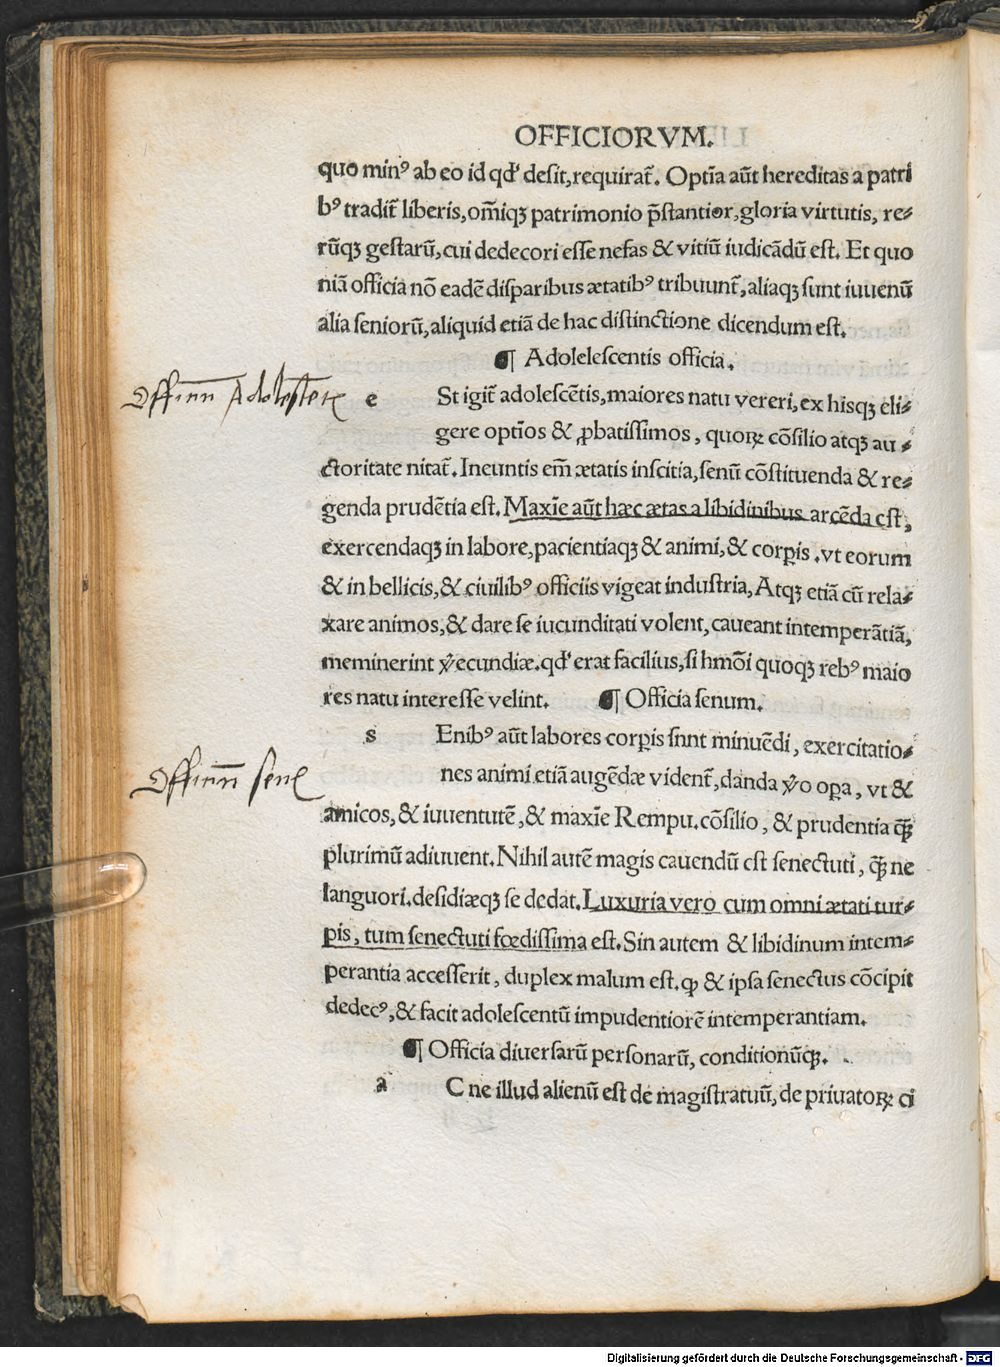 OFFICIORVM.
quo minꝰ ab eo id qđ deſit,requirat̃. Optĩa aũt hereditas a patri
bꝰ tradit̃ liberis,om̃iqꝫ patrimonio p̃ſtantior,gloria virtutis, re⸗
rũqꝫ geſtarũ,cui dedecori eſſe nefas & vitiũ iudicãdũ eſt. Et quo
niã officia nõ eadẽ diſparibus ætatibꝰ tribuunt̃,aliaqꝫ ſunt iuuenũ
alia ſeniorũ,aliquid etiã de hac diſtinctione dicendum eſt.
¶ Adoleleſcentis officia.
Officium Adoleſcen
e St igit̃ adoleſcẽtis,maiores natu vereri,ex hiſqꝫ eli⸗
gere optĩos & ꝓbatiſſimos, quoꝝ cõſilio atqꝫ au⸗
ctoritate nitat̃. Ineuntis em̃ ætatis inſcitia,ſenũ cõſtituenda & re⸗
genda prudẽtia eſt. Maxĩe aũt hæc ætas a libidinibus arcẽda eſt,
exercendaqꝫ in labore,pacientiaqꝫ & animi,& corꝑis .vt eorum
& in bellicis,& ciuilibꝰ officiis vigeat induſtria, Atqꝫ etiã cũ rela⸗
xare animos,& dare ſe iucunditati volent,caueant intemperãtiã,
meminerint v̓ecundiæ.qđ erat facilius,ſi hmõi quoqꝫ rebꝰ maio
res natu intereſſe velint. ¶ Officia ſenum.
s Enibꝰ aũt labores corꝑis ſnnt minuẽdi, exercitatio⸗
Officium ſenū
nes animi etiã augẽdæ vident̃,danda v̓o oꝑa, vt &
amicos,& iuuentutẽ,& maxĩe Rempu.cõſilio, & prudentia qꝫ̃
plurimũ adiuuent. Nihil autẽ magis cauendũ eſt ſenectuti, qꝫ̃ ne
languori.deſidiæqꝫ ſe dedat. Luxuria vero cum omni ætati tur⸗
pis, tum ſenectuti fœdiſſima eſt. Sin autem & libidinum intem⸗
perantia acceſſerit, duplex malum eſt.ꝙ & ipſa ſenectus cõcipit
dedecꝰ,& facit adoleſcentũ impudentiorẽ intemperantiam.
¶ Officia diuerſarũ perſonarũ, conditionũqꝫ.
a C ne illud alienũ eſt de magiſtratuũ, de priuatoꝝ ci
Digitalisierung gefördert durch die Deutsche Forschungsgemeinschaft - DFG